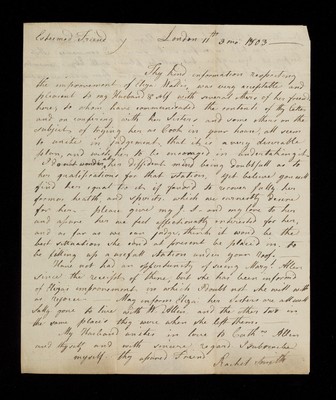 Esteemed Friend London 11th 3 mo. 1803
Thy kind information respecting
the improvement of Eliza was very acceptable and
pleasant to my Husband & self with several others of her friends
here, to whom I have communicated the contents of thy letter
and on conferring with her Sisters and some others on the
subject of trying her as Cook in your house, all seem
to unite in judgement, that it is a very desirable
plan, and wish her to be encouraged in undertaking it
I doubt not her diffident mind being doubtfull as to
her qualifications for that station, yet believe you will
find her equal to it, if favord to recover fully her
former health, and spirits, which we earnestly desire
for her. please give my & love to her
and assure her we feel affectionately interested for her,
and as far as we can judge, think it would be the
best situation she could at present be placed in, to
be filling up a usefull station under your roof.
I have not had an opportunity of seeing Mary Allen
since the receipt of thine, but she has been informd
of Elizas improvement in which I doubt not she will with
us rejoice. May inform Eliza her Sisters are all well
Sally gone to live with W. Allen and the other two in
the same places they were when she left them.
My Husband unites in love to Allen
and thyself and with sincere regard I subscribe
myself thy assured Friend
Rachel Smith